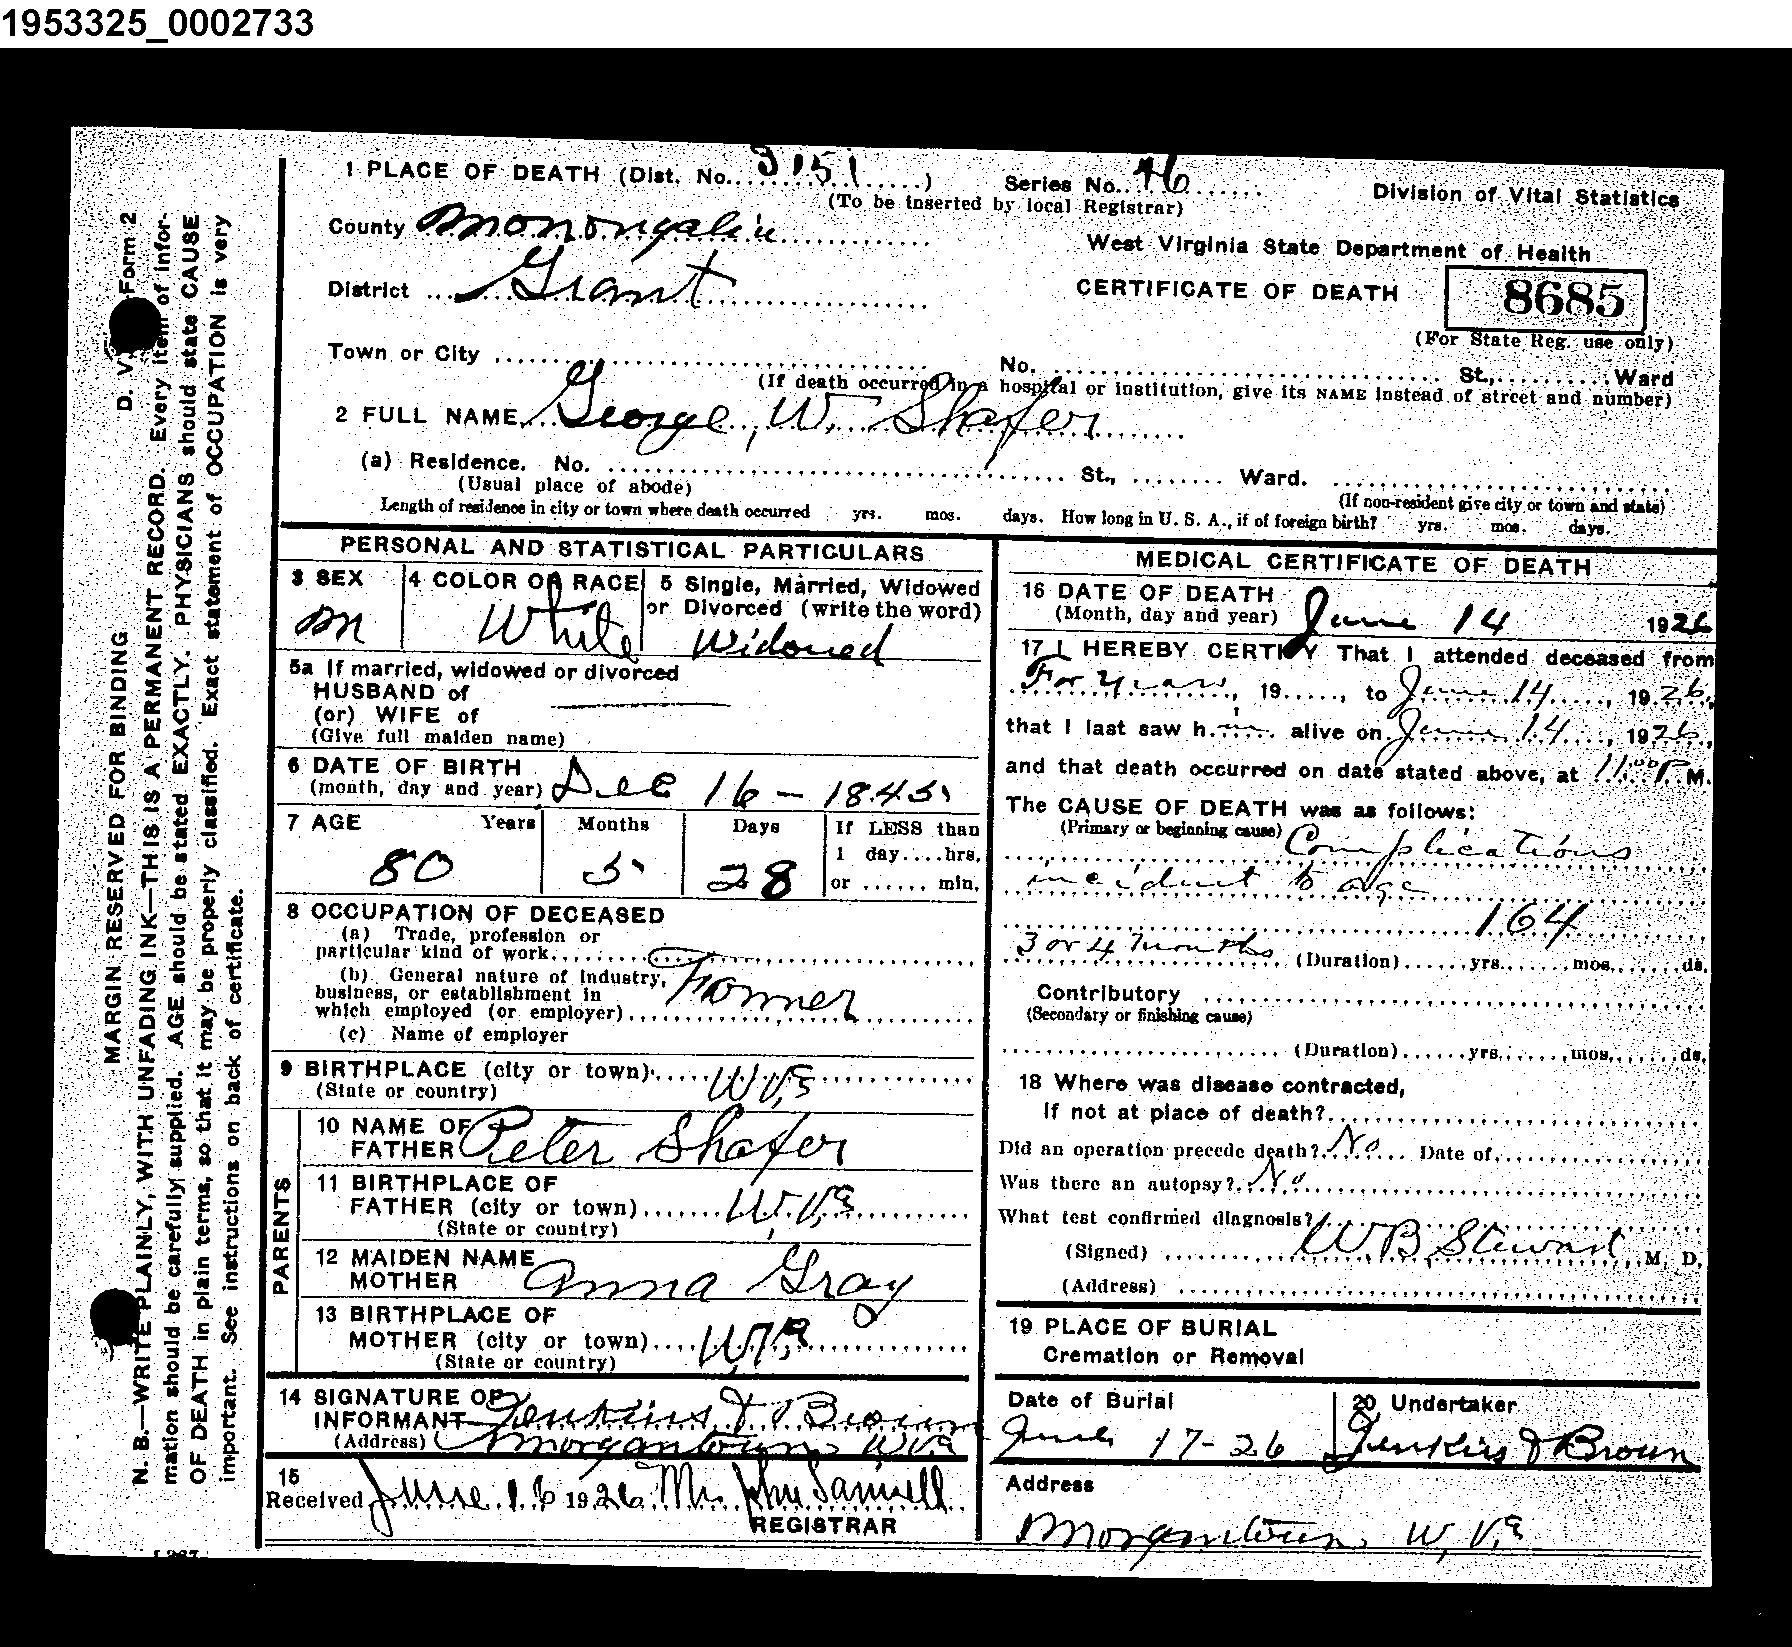 1953325_0002733
1 PLACE OF DEATH (Dist. No. 3151) Series No. 46
(To be inserted by local Registrar)
Division of Vital Statistics
County Monongalia
West Virginia State Department of Health
District Grant
CERTIFICATE OF DEATH
8685
(For State Reg. use only)
Town or City
No. St., Ward
(If death occurred in a hospital or institution, give its NAME instead of street and number)
2 FULL NAME George, W. Shafer
(a) Residence. No. St., Ward.
(Usual place of abode)
(If non-resident give city or town and state)
Length of residence in city or town where death occurred yrs. mos. days. How long in U. S. A., if of foreign birth? yrs. mos. days.
PERSONAL AND STATISTICAL PARTICULARS
3 SEX
M
4 COLOR OR RACE
White
5 Single, Married, Widowed
or Divorced (write the word)
Widowed
5a If married, widowed or divorced
HUSBAND of
(or) WIFE of
(Give full maiden name)
6 DATE OF BIRTH
(month, day and year) Dec 16 - 1845
7 AGE Years Months Days
80 5 28
If LESS than
1 day....hrs.
or ...... min.
8 OCCUPATION OF DECEASED
(a) Trade, profession or
particular kind of work
(b) General nature of industry,
business, or establishment in
which employed (or employer)
Farmer
(c) Name of employer
9 BIRTHPLACE (city or town) W.Va
(State or country)
PARENTS
10 NAME OF
FATHER Peter Shafer
11 BIRTHPLACE OF
FATHER (city or town) W.Va
(State or country)
12 MAIDEN NAME
MOTHER Anna Gray
13 BIRTHPLACE OF
MOTHER (city or town) W.Va
(State or country)
14 SIGNATURE OF
INFORMANT Jenkins & Brown
(Address) Morgantown W.Va
15
Received June 16 1926 Mr John Sanisell
REGISTRAR
MEDICAL CERTIFICATE OF DEATH
16 DATE OF DEATH
(Month, day and year) June 14 1926
17 I HEREBY CERTIFY That I attended deceased from
For years, 19....., to June 14, 1926,
that I last saw him alive on June 14, 1926,
and that death occurred on date stated above, at 11:00 P. M.
The CAUSE OF DEATH was as follows:
(Primary or beginning cause) Complications
incident to age
164
3 or 4 months (Duration) yrs. mos. ds.
Contributory
(Secondary or finishing cause)
(Duration) yrs. mos. ds.
18 Where was disease contracted,
if not at place of death?
Did an operation precede death? No Date of
Was there an autopsy? No
What test confirmed diagnosis?
(Signed) W B Stewart, M. D.
(Address)
19 PLACE OF BURIAL
Cremation or Removal
Date of Burial
June 17-26
20 Undertaker
Jenkins & Brown
Address
Morgantown, W.Va
D. V. Form 2
MARGIN RESERVED FOR BINDING
N. B.—WRITE PLAINLY, WITH UNFADING INK—THIS IS A PERMANENT RECORD. Every item of infor-
mation should be carefully supplied. AGE should be stated EXACTLY. PHYSICIANS should state CAUSE
OF DEATH in plain terms, so that it may be properly classified. Exact statement of OCCUPATION is very
important. See instructions on back of certificate.